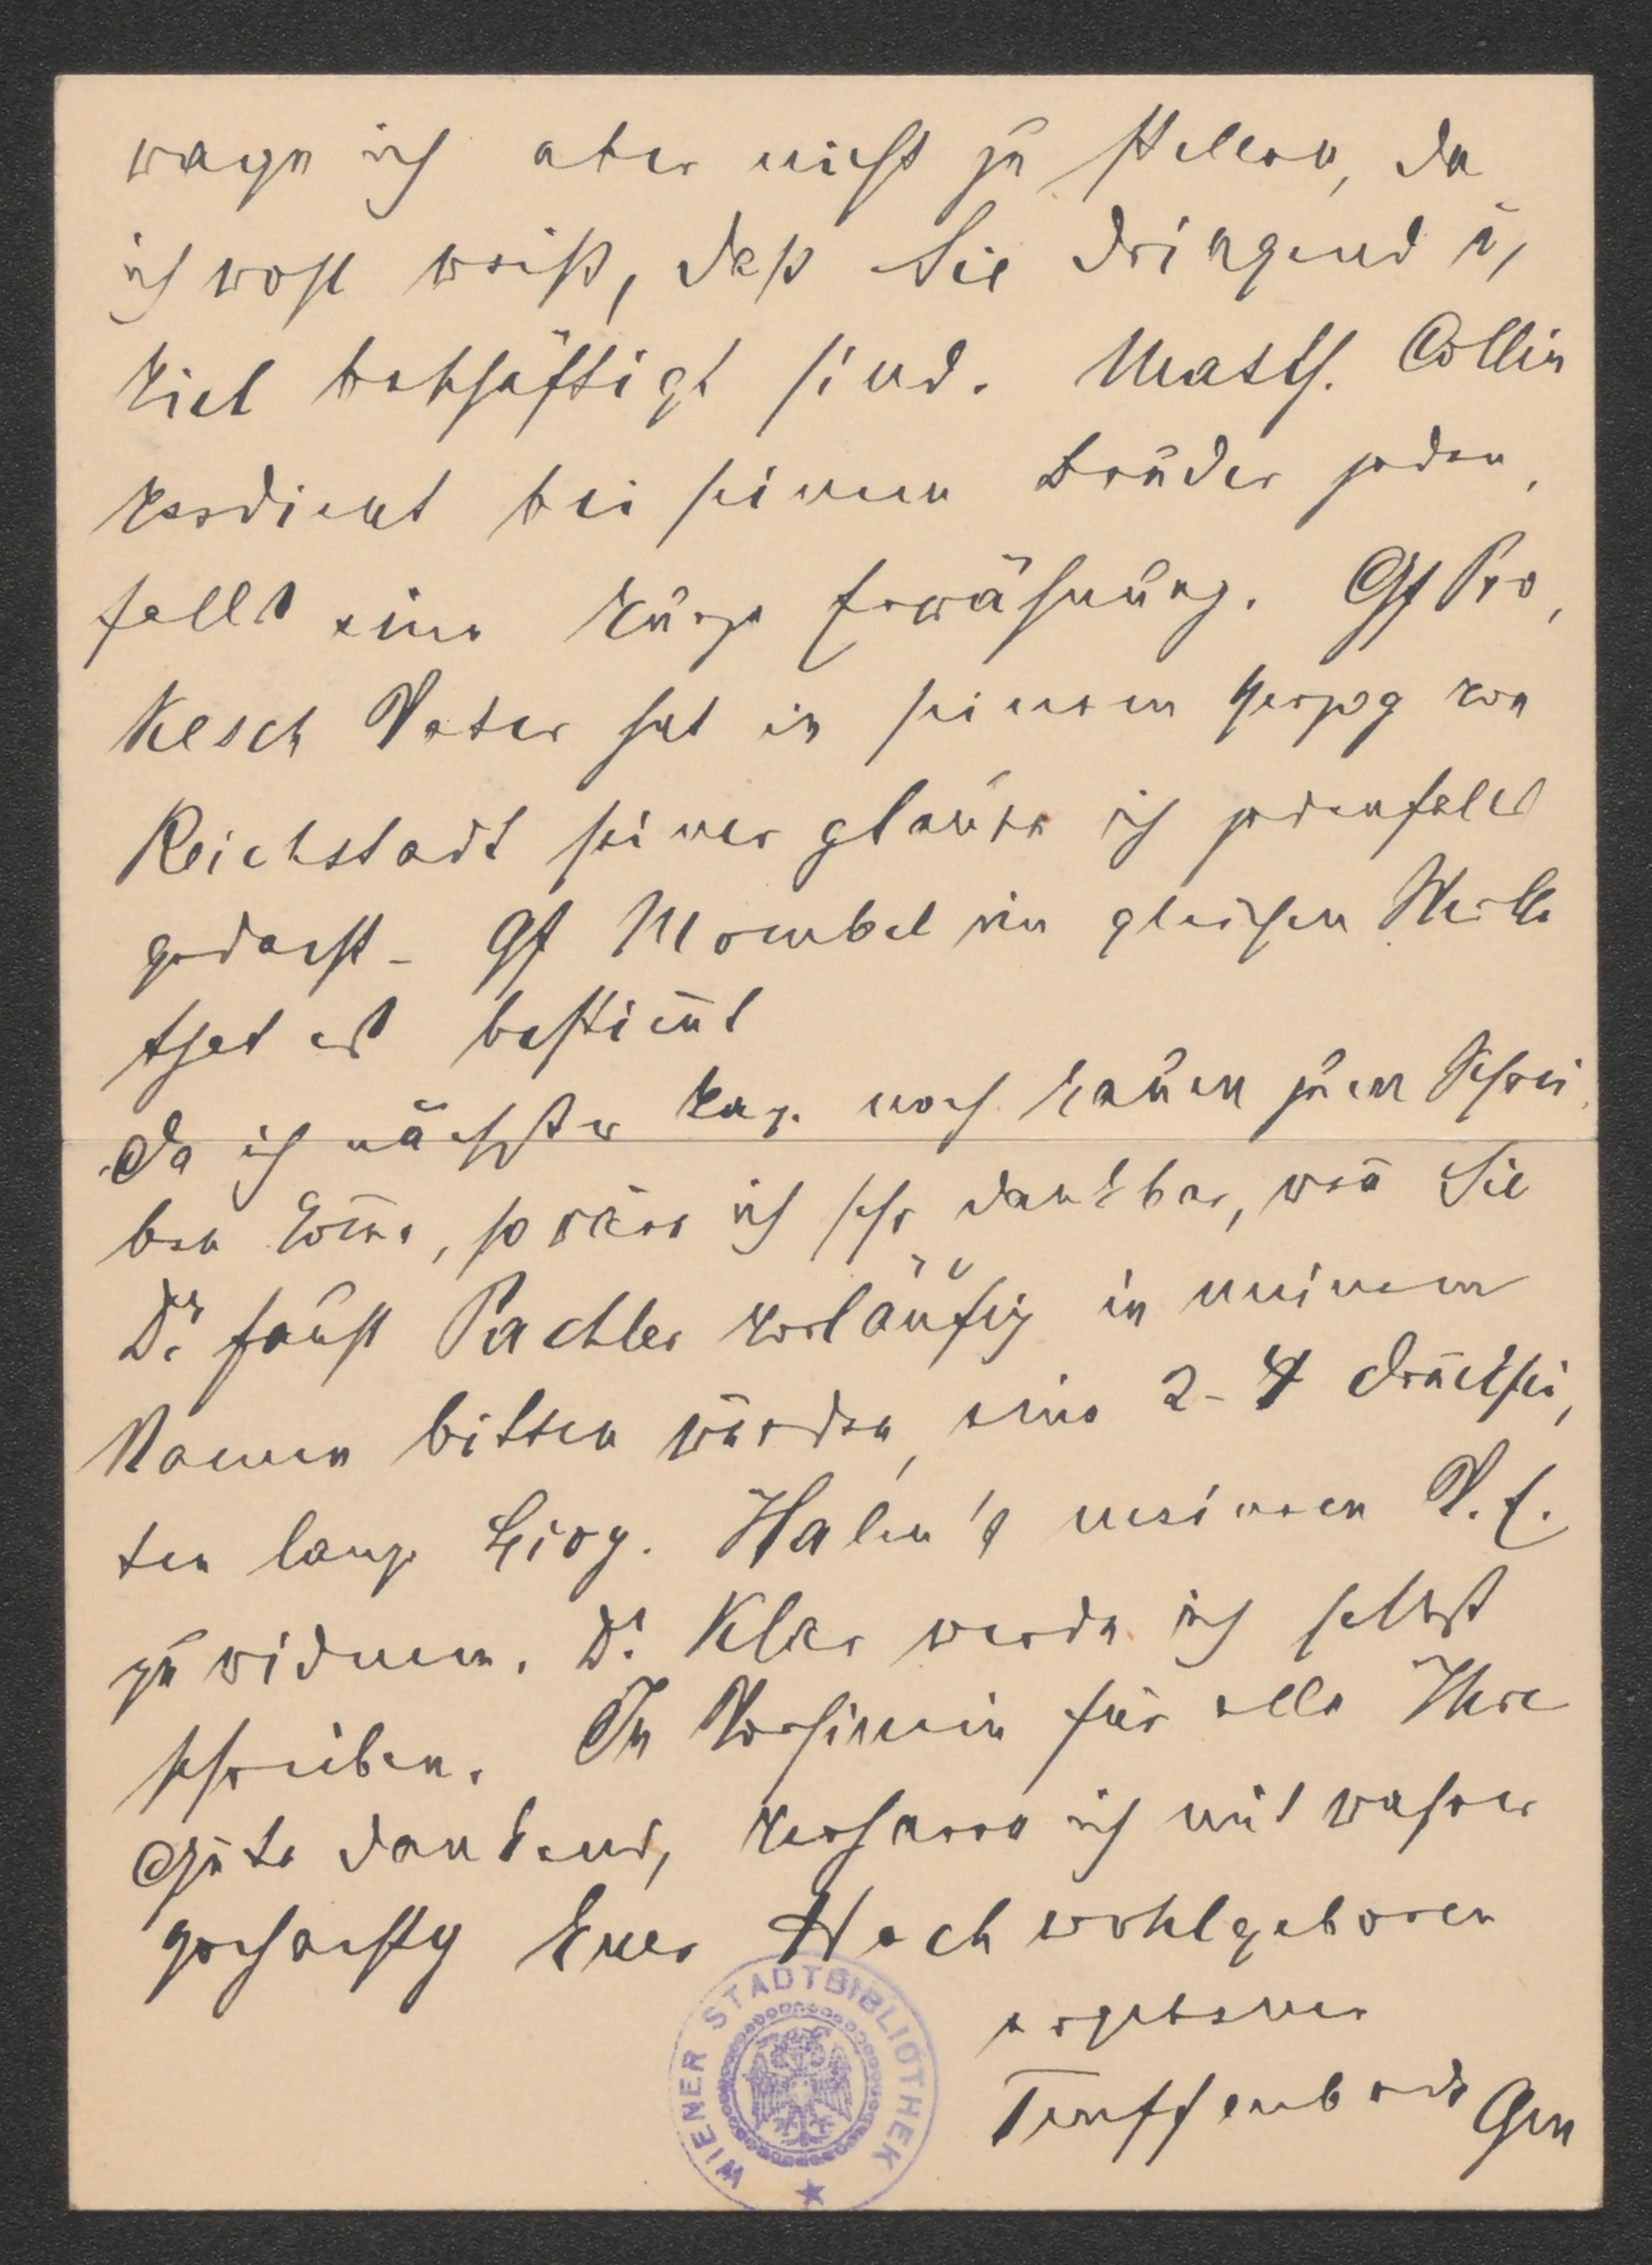 wage ich aber nicht zu stellen, da
ich wohl weiß, daß Sie dringend u,
viel beschäftigt sind. Matth. Collin
verdient bei seinem Bruder jeden,
falls eine kurze Erwähnung. Gf Pro,
kesch Vater hat in seinem Herzog von
Reichstadt seiner glaube ich jedenfalls
gedacht – Gf Montbel im gleichen Werke
that es bestim̄t
Da ich nächster Tage noch kaum zum Schrei
ben kom̄e, so wäre ich sehr dankbar, wen̄ Sie
Dr. Faust Pachler vorläufig in meinem
Namen bitten würden, eine 2-4 Drucksei,
ten lange Biog. Halm's meinem V. E.
zu widmen. Dr. Klar werde ich selbst
schreiben. Im Vorhinein für alle Ihre
Güte dankend, verharre ich mit wahrer
Hochachtg Euer Hochwohlgeboren
ergebener
Teuffenbach Gm
WIENER STADTBIBLIOTHEK